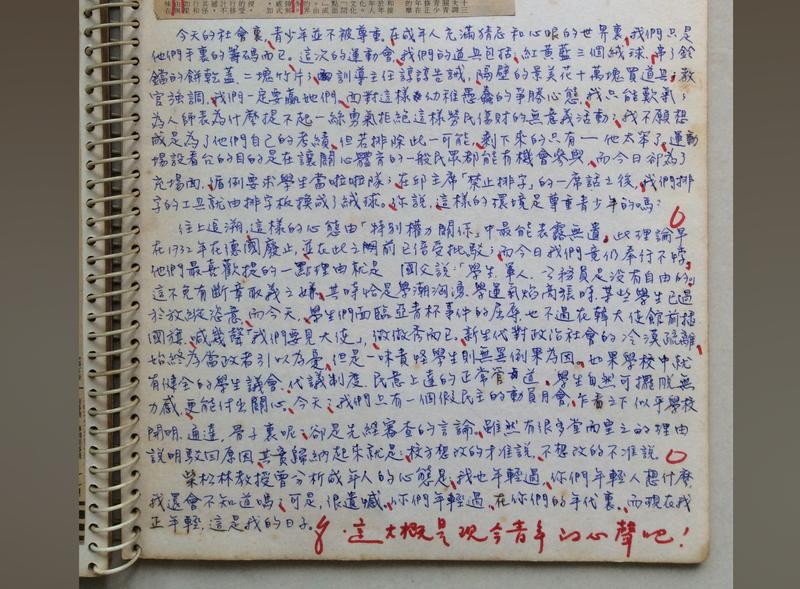 今天的社會裏,青少年並不被尊重,在成年人充滿猜忌和心眼的世界裏,我們只是
他們手裏的籌碼而已。這次的運動會,我們的道具包括:紅黃藍三個絨球、串了鈴
鐺的餅乾蓋、二塊竹片;訓導主任諄諄告誡,隔壁的景美花十萬塊買道具;教
官強調,我們一定要贏她們,面對這樣幼稚愚蠢的爭勝心態,我只能歎氣;
為人師表為什麼提不起一絲勇氣拒絕這樣勞民傷財的無意義活動;我不願想
成是為了他們自己的考績,但若排除此一可能,剩下來的只有──他太笨了,運動
場設看台的目的是在讓關心體育的一般民眾都能有機會參與,而今日卻為了
充場面,循例要求學生當啦啦隊;在邱主席「禁止排字」的一席話之後,我們排
字的工具就由排字板換成了絨球。你說,這樣的環境是尊重青少年的嗎?
往上追溯,這樣的心態由「特別權力關係」中最能表露無遺,此理論早
在1932年在德國廢止,並在此之前已倍受批駁;而今日我們竟仍奉行不悖,
他們最喜歡提的一點理由就是 國父說:「學生、軍人、公務員是沒有自由的」
這不免有斷章取義之嫌,其時恰是學潮洶湧,學運氣焰高張時,某些學生已過
於放縱恣意,而今天,學生們面臨亞青杯事件的屈辱,也不過在韓大使館前插
國旗,喊幾聲「我們要見大使」,做做秀而已,新生代對政治社會的冷漠疏離,
始終為當政者引以為憂,但是一味責怪學生則無異倒果為因,如果學校中就
有健全的學生議會、代議制度、民意上達的正常管道,學生自然可擺脫無
力感,更能付出關心,今天;我們只有一個假民主的動員月會,乍看之下似乎學校
開明、通達,骨子裏呢;卻是先經審查的言論,雖然有很多堂而皇之的理由
說明駁回原因,其實歸納起來就是:校方想改的才准說,不想改的不准說。
柴松林教授曾分析成年人的心態是,我也年輕過,你們年輕人想什麼
我還會不知道嗎;可是,很遺憾,你們年輕過,在你們的年代裏,而現在我
正年輕,這是我的日子。
這大概是現今青年的心聲吧!